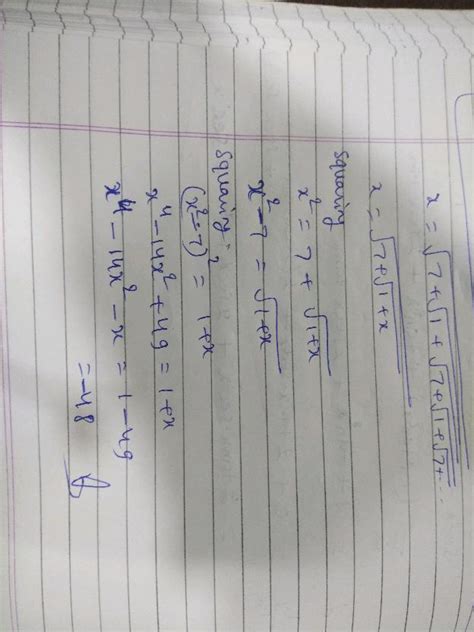 x = √7 + √1 + √7 + √1 + √7 + ...
x = √7 + √1 + x
squaring
x² = 7 + √1+x
x² - 7 = √1+x
squaring
(x² - 7)² = 1+x
x⁴ - 14x² + 49 = 1+x
x⁴ - 14x² - x = 1 - 49
= -48